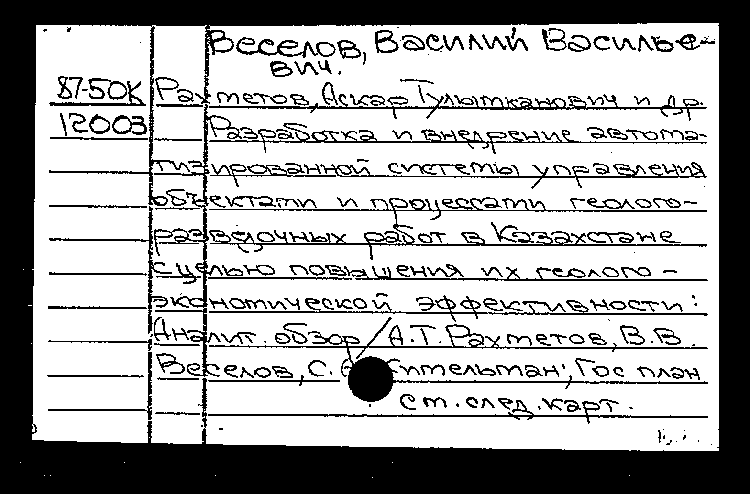 Веселов, Василий Василье-
вич.
87-50К Рахметов, Аскар Тулымканович и др.
12003 Разработка и внедрение автома-
тизированной системы управления
объектами и процессами геолого-
разведочных работ в Казахстане
с целью повышения их геолого-
экономической эффективности:
Аналит. обзор / А.Т. Рахметов, В.В.
Веселов, С. Гос план
см. след. карт.